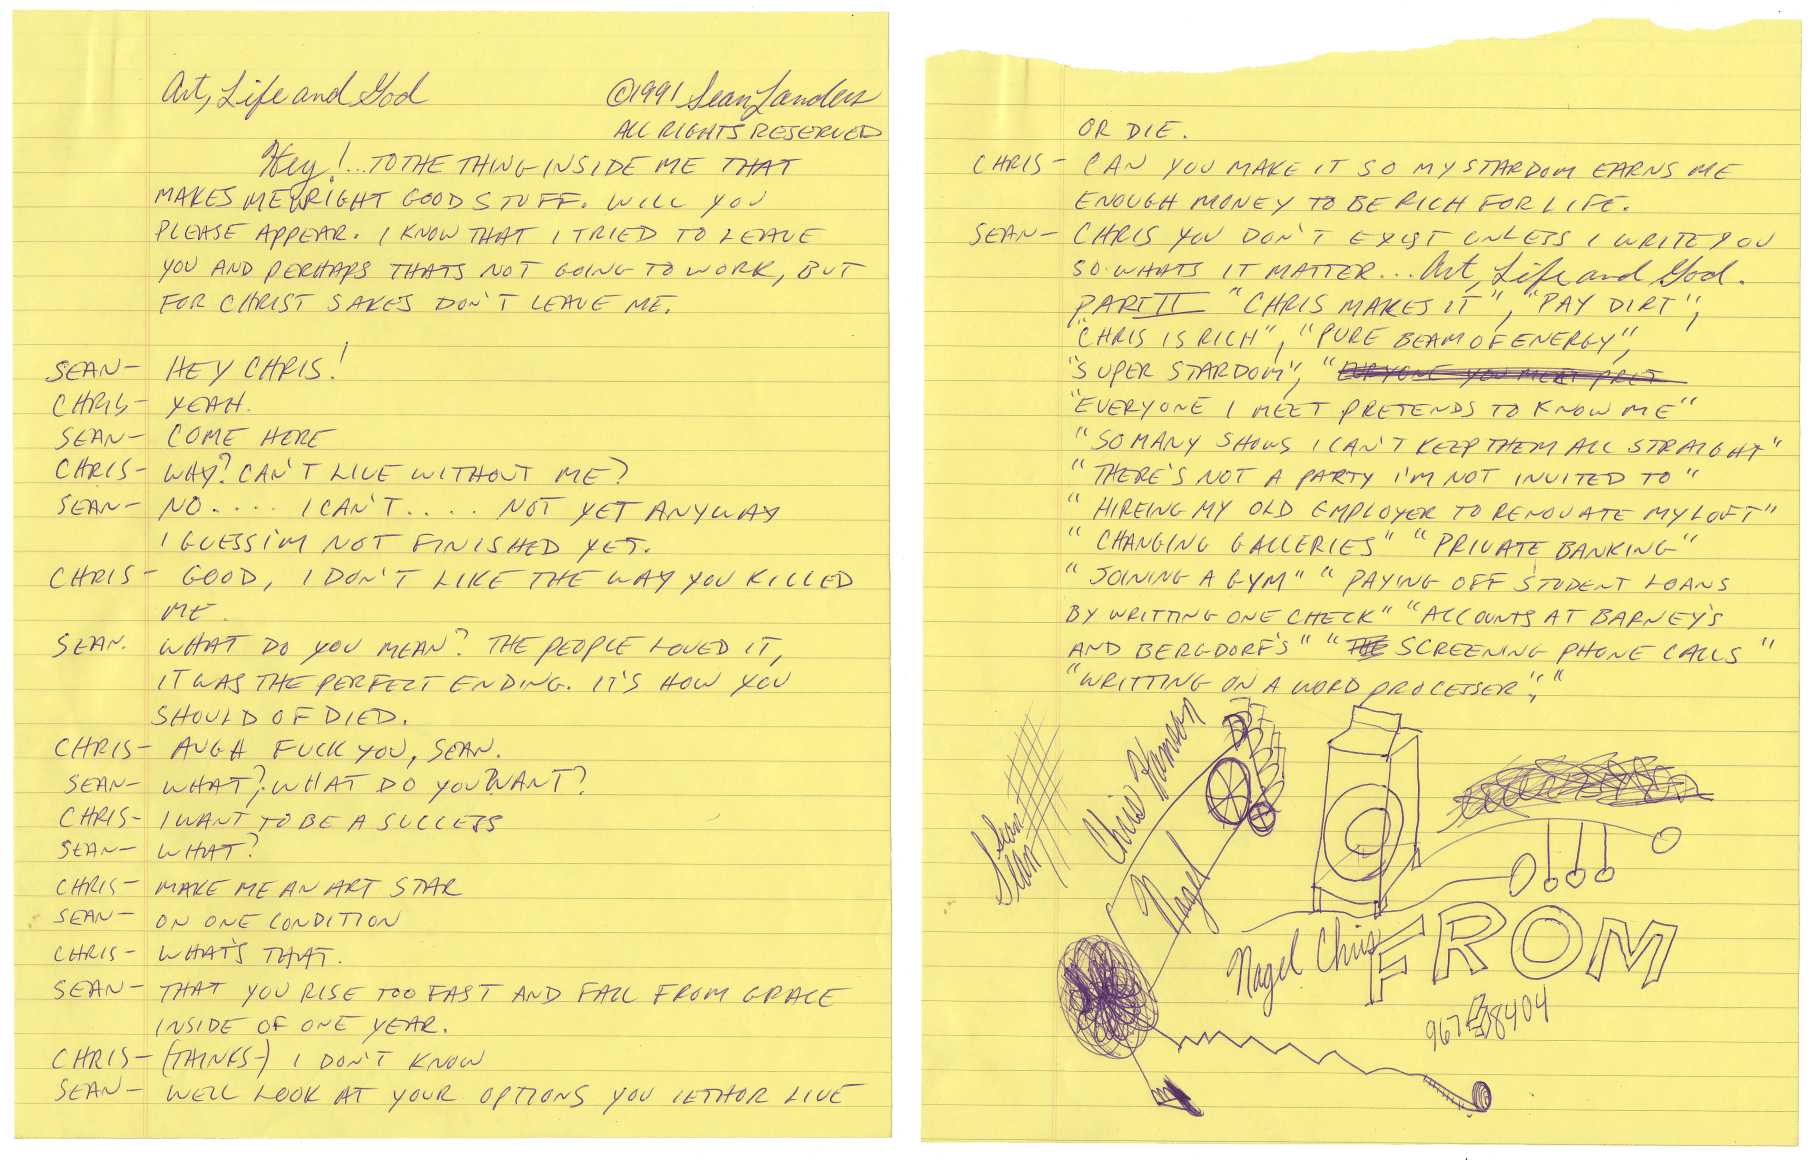 Art, Life and God ©1991 Sean Landers
ALL RIGHTS RESERVED
Hey!...TO THE THING INSIDE ME THAT
MAKES ME WRIGHT GOOD STUFF. WILL YOU
PLEASE APPEAR. I KNOW THAT I TRIED TO LEAVE
YOU AND PERHAPS THATS NOT GOING TO WORK, BUT
FOR CHRIST SAKES DON'T LEAVE ME.
SEAN- HEY CHRIS!
CHRIS- YEAH.
SEAN- COME HERE
CHRIS- WHY? CAN'T LIVE WITHOUT ME?
SEAN- NO.... I CAN'T.... NOT YET ANYWAY
I GUESS I'M NOT FINISHED YET.
CHRIS- GOOD, I DON'T LIKE THE WAY YOU KILLED
ME.
SEAN. WHAT DO YOU MEAN? THE PEOPLE LOVED IT,
IT WAS THE PERFECT ENDING. IT'S HOW YOU
SHOULD OF DIED.
CHRIS- AUGH FUCK YOU, SEAN.
SEAN- WHAT? WHAT DO YOU WANT?
CHRIS- I WANT TO BE A SUCCESS
SEAN- WHAT?
CHRIS- MAKE ME AN ART STAR
SEAN- ON ONE CONDITION
CHRIS- WHAT'S THAT.
SEAN- THAT YOU RISE TOO FAST AND FALL FROM GRACE
INSIDE OF ONE YEAR.
CHRIS- (THINKS-) I DON'T KNOW
SEAN- WELL LOOK AT YOUR OPTIONS YOU IETHOR LIVE
OR DIE.
CHRIS- CAN YOU MAKE IT SO MY STARDOM EARNS ME
ENOUGH MONEY TO BE RICH FOR LIFE.
SEAN- CHRIS YOU DON'T EXIST UNLESS I WRITE YOU
SO WHATS IT MATTER... Art, Life and God.
PART II "CHRIS MAKES IT", "PAY DIRT",
"CHRIS IS RICH", "PURE BEAM OF ENERGY",
"SUPER STARDOM", "
"EVERYONE I MEET PRETENDS TO KNOW ME"
"SO MANY SHOWS I CAN'T KEEP THEM ALL STRAIGHT"
"THERE'S NOT A PARTY I'M NOT INVITED TO"
"HIREING MY OLD EMPLOYER TO RENOVATE MY LOFT"
"CHANGING GALLERIES" "PRIVATE BANKING"
"JOINING A GYM" "PAYING OFF STUDENT LOANS
BY WRITTING ONE CHECK" "ACCOUNTS AT BARNEY'S
AND BERGDORF'S" "THE SCREENING PHONE CALLS"
"WRITTING ON A WORD PROCESSER", "
Sean
Sean
Chris Hamson
Nagel
Nagel Chris
FROM
967 8404